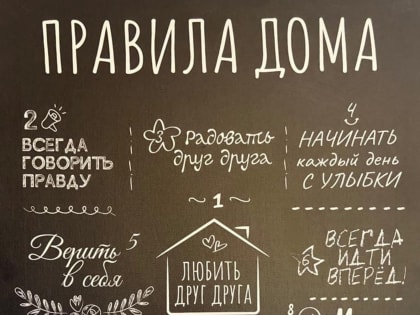 ПРАВИЛА ДОМА
2
ВСЕГДА
ГОВОРИТЬ
ПРАВДУ
3 Радовать
друг друга
4
НАЧИНАТЬ
каждый день
С УЛЫБКИ
~ 1 ~
ЛЮБИТЬ
ДРУГ ДРУГА
Верить 5
в себя
6
ВСЕГДА
ИДТИ
ВПЕРЁД!
8